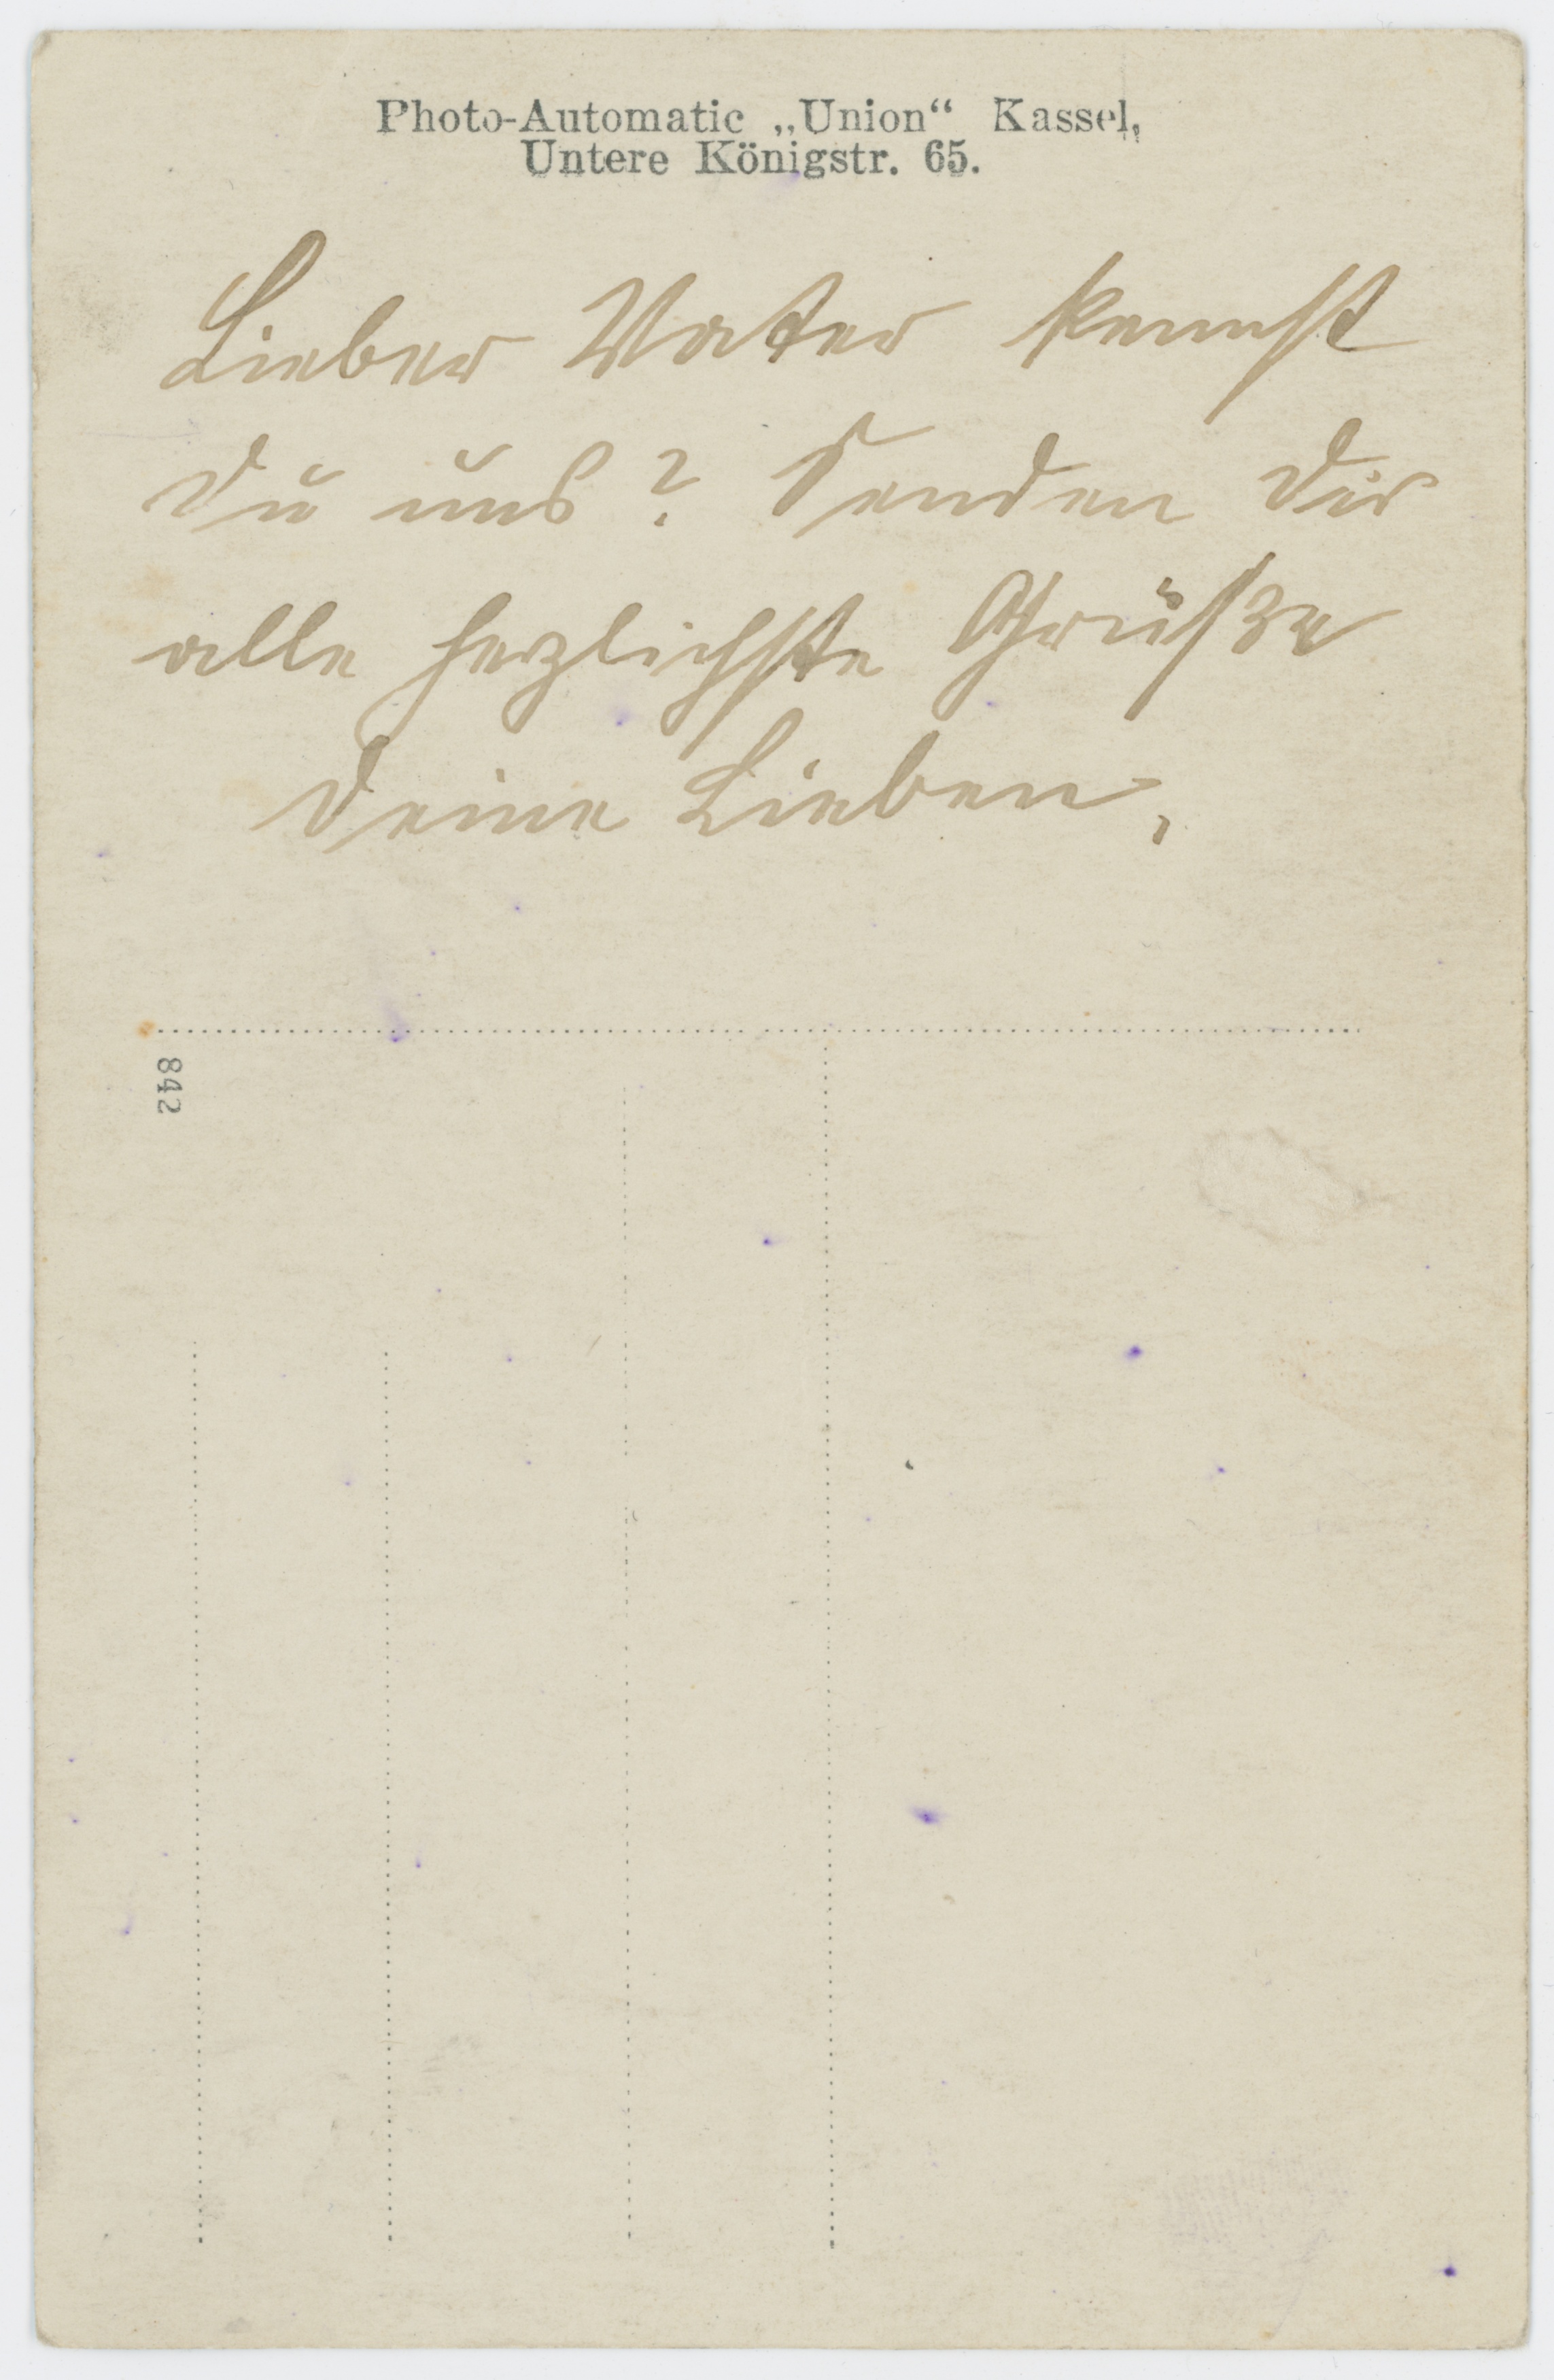 Photo-Automatic „Union“ Kassel,
Untere Königstr. 65.
Lieber Vater kennst
Du uns? Senden Dir
alle herzlichste Grüße
Deine Lieben.
842